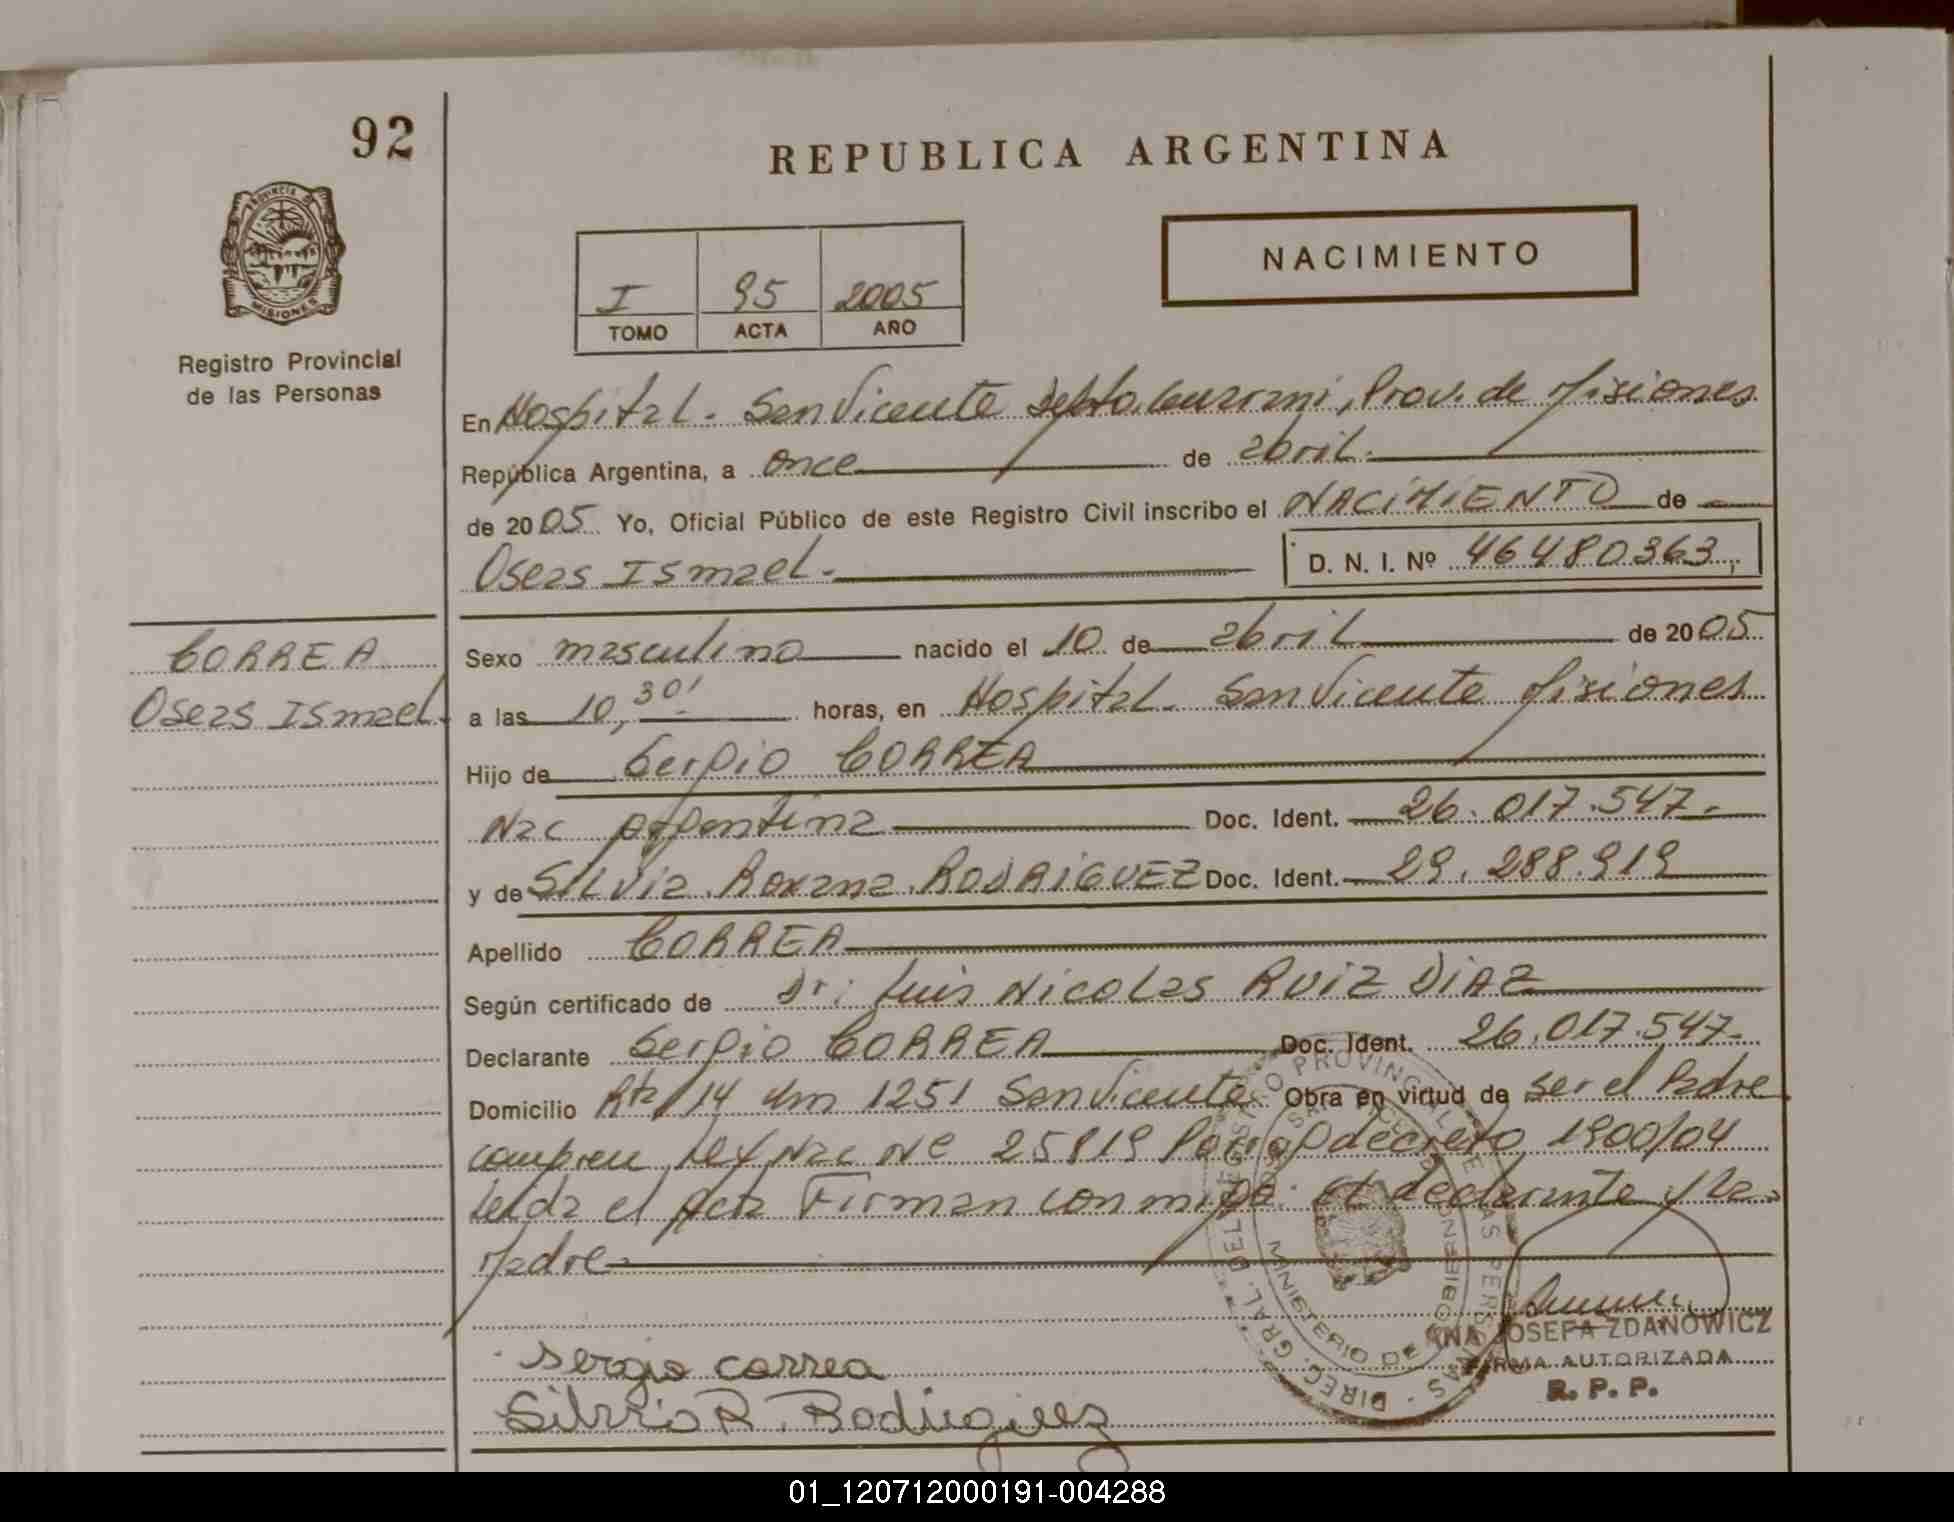 92
REPUBLICA ARGENTINA
NACIMIENTO
PROVINCIA
MISIONES
I 95 2005
TOMO ACTA AÑO
Registro Provincial
de las Personas
En Hospital. San Vicente Depto. Guarani, Prov. de Misiones
República Argentina, a once de abril.
de 2005 Yo, Oficial Público de este Registro Civil inscribo el NACIMIENTO de
Oseas Ismael. D. N. I. Nº 46480363,
CORREA
Oseas Ismael.
Sexo masculino nacido el 10 de abril de 2005
a las 10,30' horas, en Hospital. San Vicente Misiones
Hijo de Sergio CORREA
Nac Argentina Doc. Ident. 26.017.547.
y de Silvia Roxana RODRIGUEZ Doc. Ident. 29.288.919
Apellido CORREA
Según certificado de Dr: Luis Nicolas RUIZ DIAZ
Declarante Sergio CORREA Doc. Ident. 26.017.547.
Domicilio Rta 14 Km 1251 San Vicente Obra en virtud de ser el Padre
Ley Nac Nº 25819 decreto 1900/04
Leida el Acta Firman con migo: el declarante y la
Madre
Sergio correa
Silvia R. Rodriguez
ANA JOSEFA ZDANOWICZ
FIRMA AUTORIZADA
R. P. P.
DIREC. GRAL. DEL REGISTRO PROVINCIAL DE LAS PERSONAS
MINISTERIO DE GOBIERNO
01_120712000191-004288